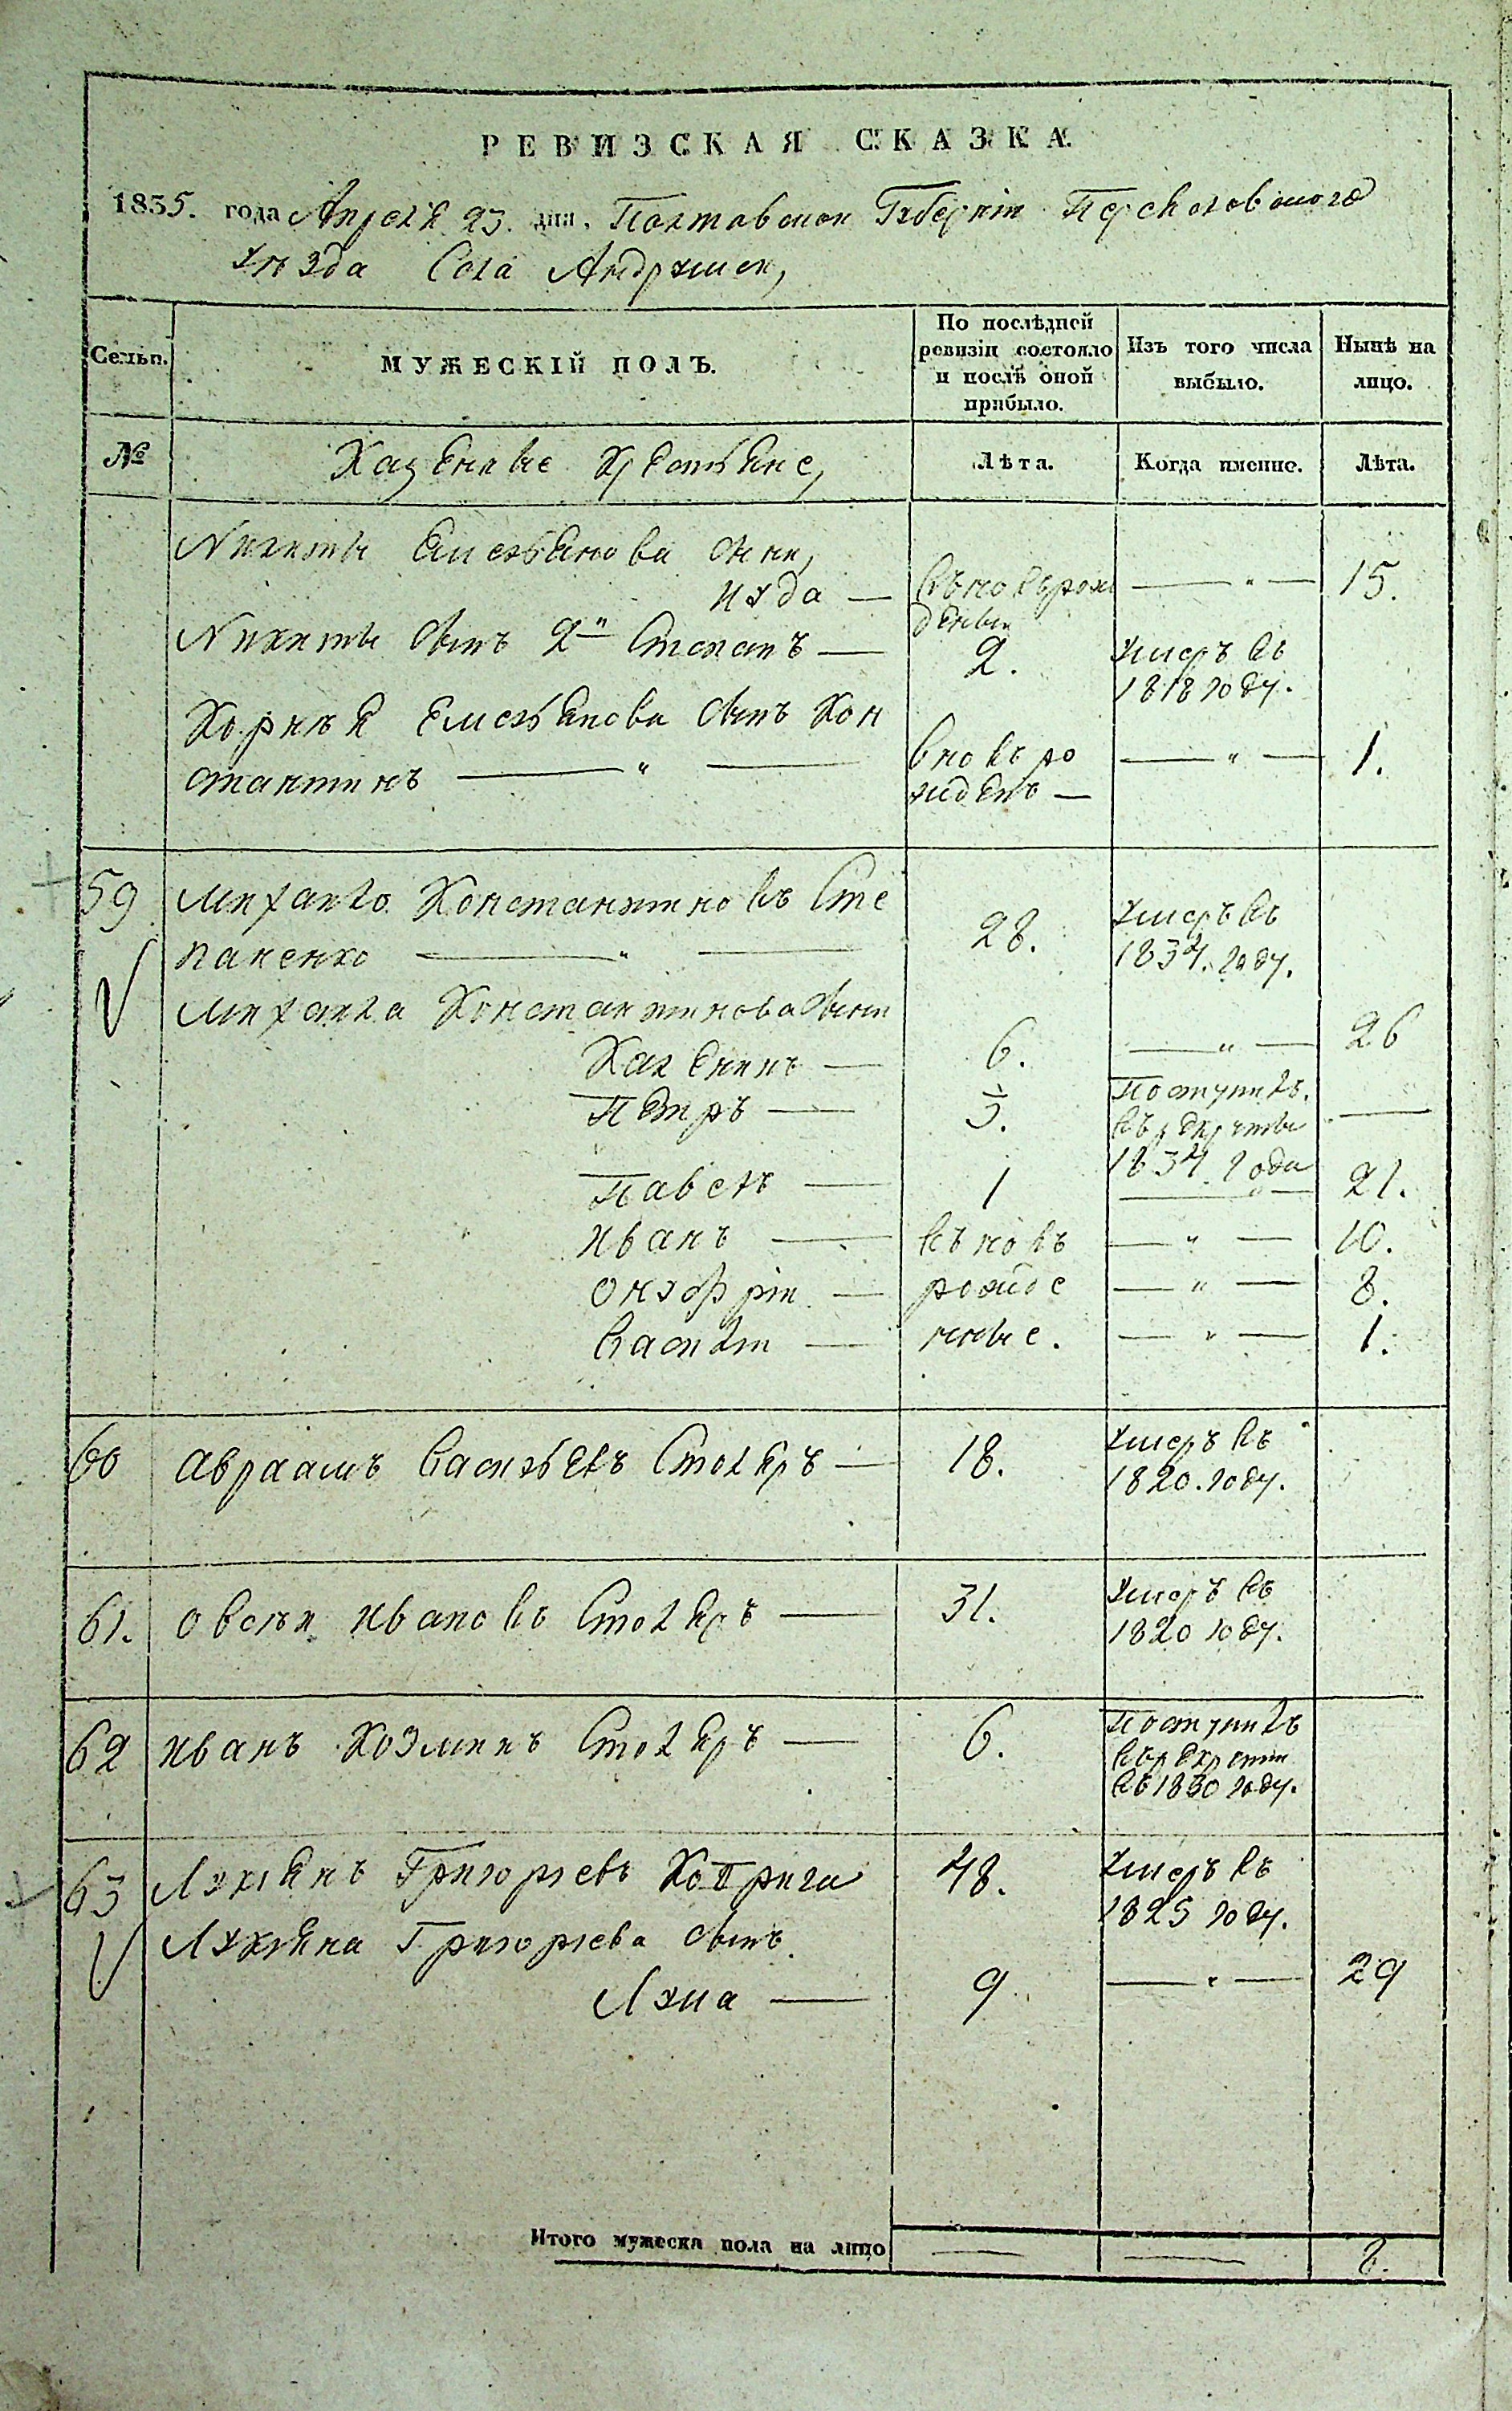 РЕВИЗСКАЯ СКАЗКА.
1835. года Апреля 23. дня, Полтавской Губернiи Переяславского
уѣзда Села Андрушек,
Семьи.
МУЖЕСКIЙ ПОЛЪ.
По послѣдней ревизiи состояло и послѣ оной прибыло.
Изъ того числа выбыло.
Нынѣ на лицо.
№
Казенные Крестьяне,
Лѣта.
Когда именно.
Лѣта.
Никиты Емельянова сыни,
Иуда — въновърож — „ — 15.
денны
Никиты сынъ 2й Степанъ — 2. умеръ въ
1818 году.
Корнѣя Емельянова сынъ Кон
стантинъ — „ — вновь ро — „ — 1.
жденъ —
59 Михайло Константиновъ Сте
паненко — „ — 28. умеръ въ
1834. году.
Михайла Константинова сыни
Каленикъ — 6. — „ — 26
Петръ — 3. Поступилъ
въ рекруты —
1834 года
Павелъ — 1 — „ — 21.
Иванъ — въновь — „ — 10.
Онуфрiй — рожде — „ — 8.
Василiй — нные. — „ — 1.
60 Авраамъ Васильевъ Столяръ — 18. умеръ въ
1820. году.
61. Овсѣй Ивановъ Столяръ — 31. умеръ въ
1820 году.
62 Иванъ Козминъ Столяръ — 6. Поступилъ
въ рекруты
въ 1830 году.
63 Лукянъ Григорьевъ Кот рига 48. умеръ въ
1825 году.
Лукяна Григорьева сынъ
Лума — 9 — „ — 29
Итого мужеска пола на лицо — — 8.